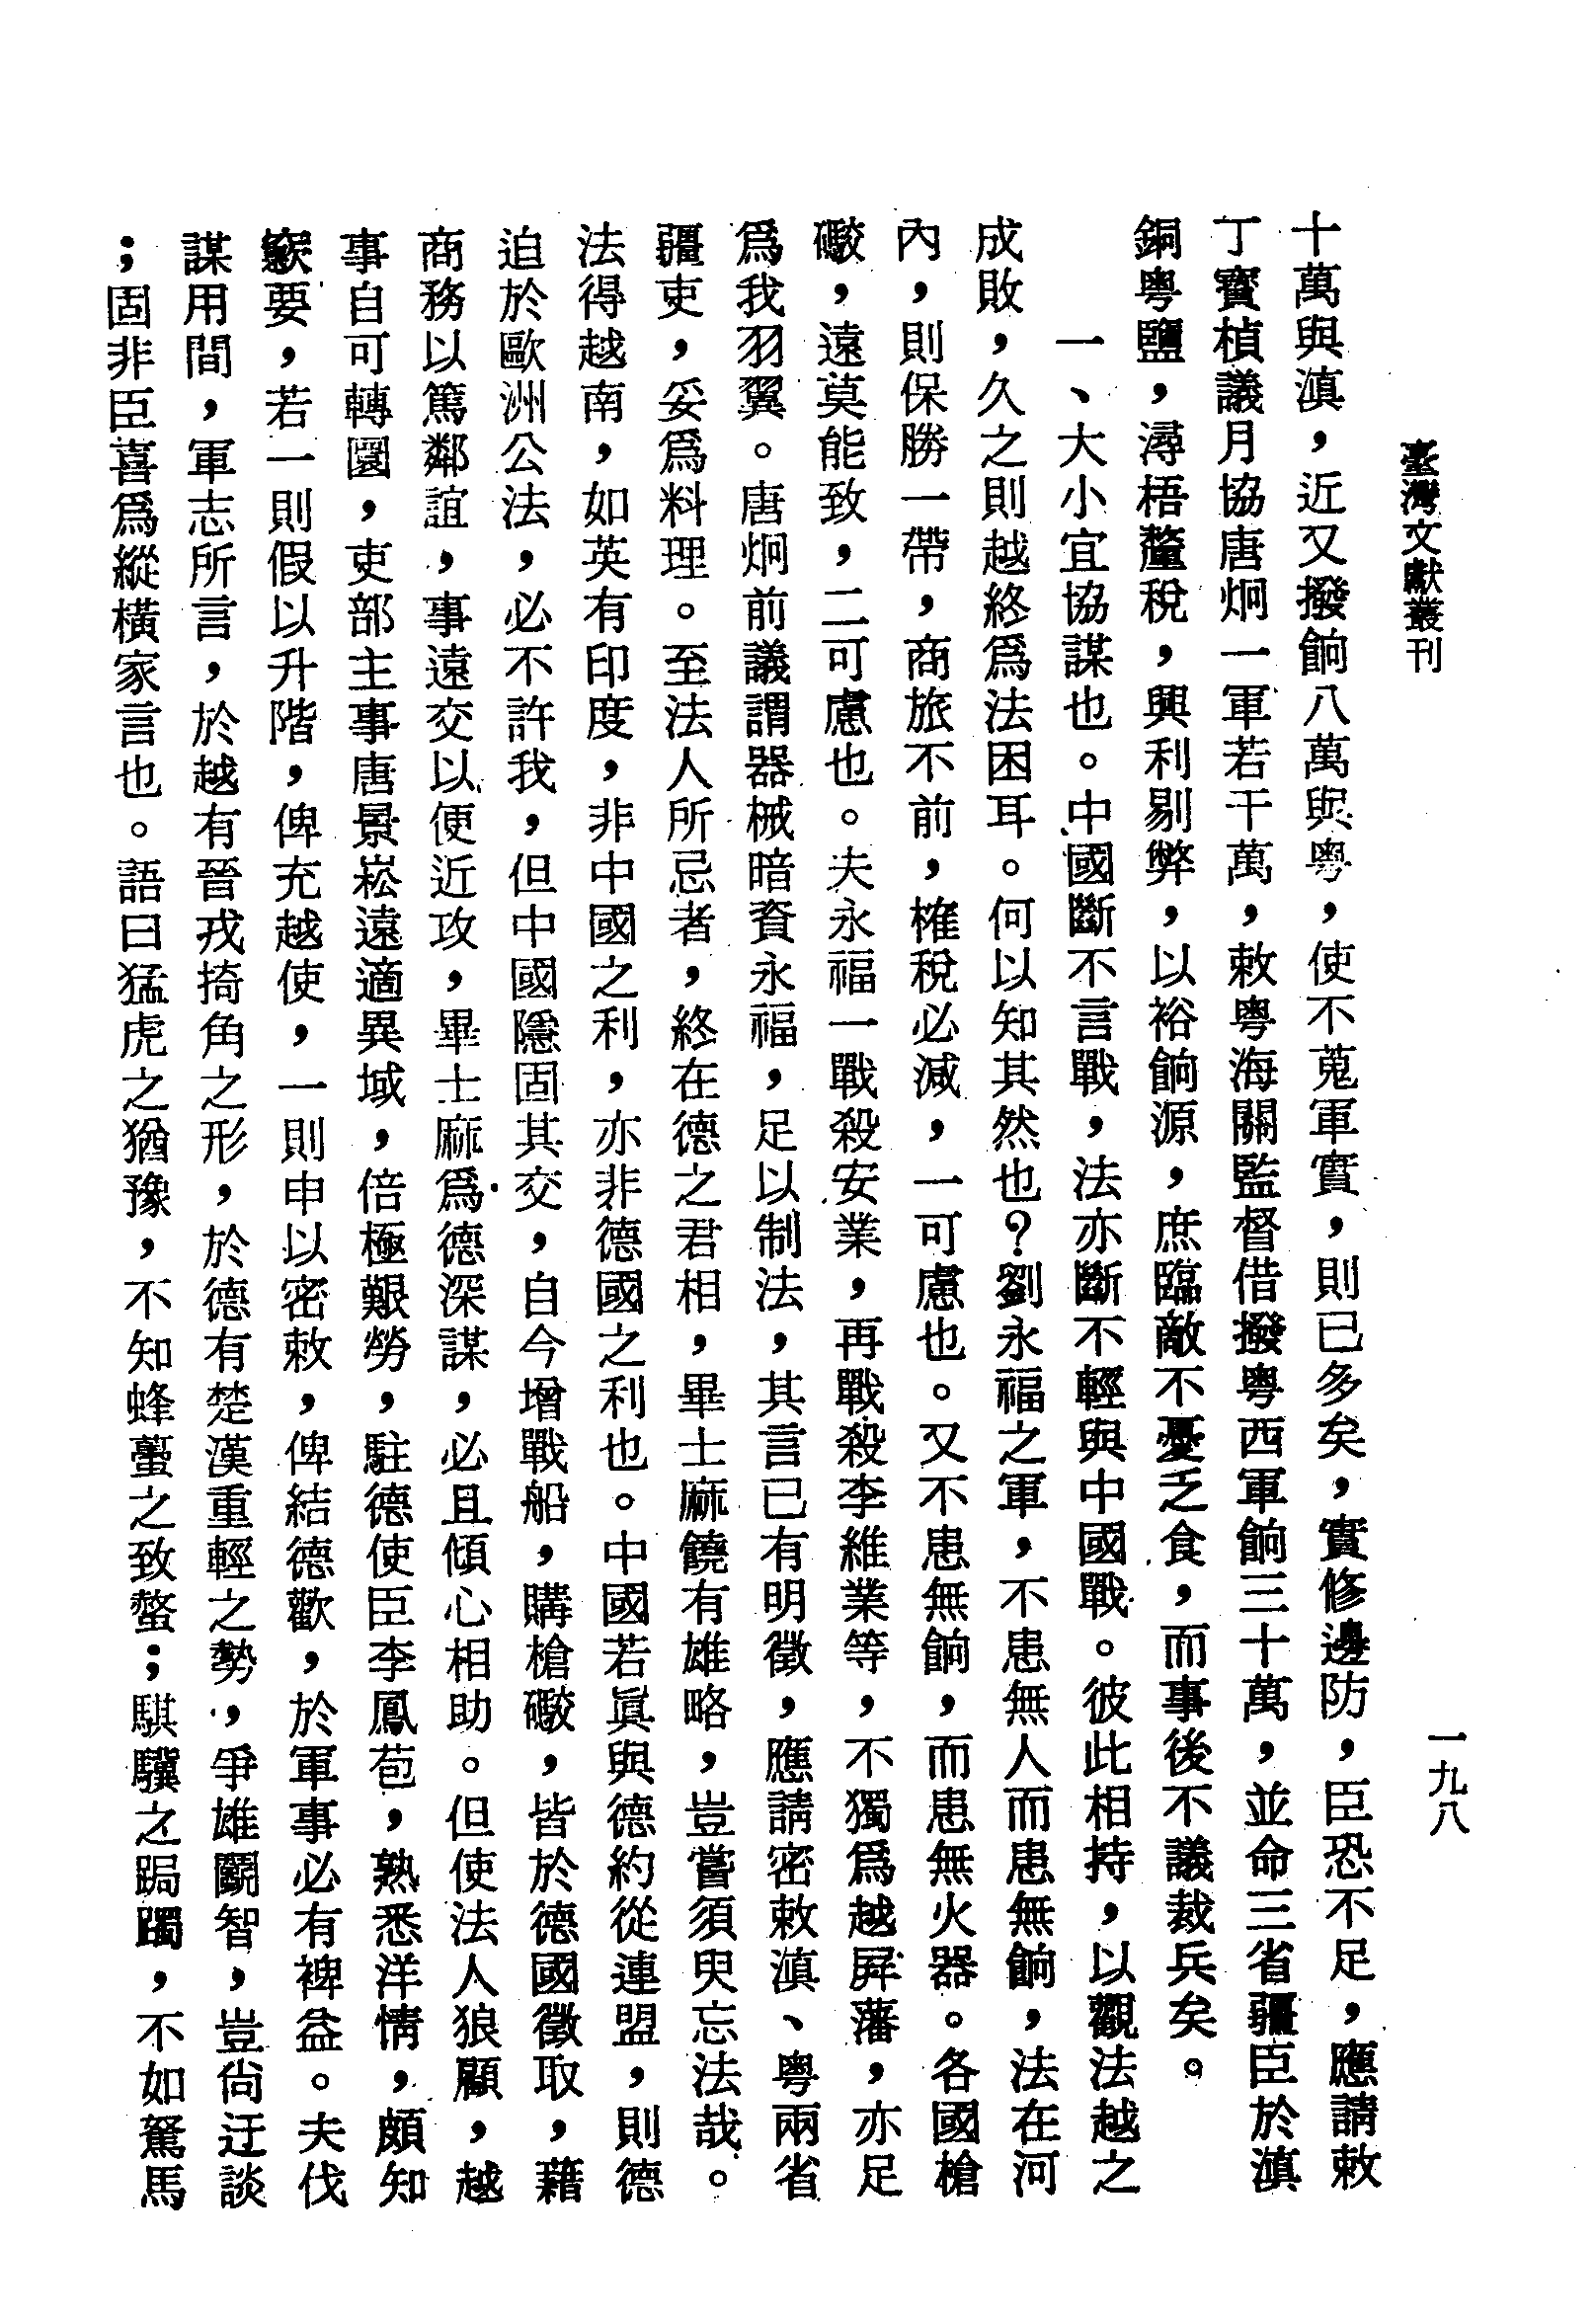 臺灣文獻叢刊
一九八
十萬與滇，近又撥餉八萬與粵，使不蒐軍實，則已多矣，實修邊防，臣恐不足，應請敕
丁寶楨議月協唐炯一軍若干萬，敕粵海關監督借撥粵西軍餉三十萬，並命三省疆臣於滇
銅粵鹽，潯梧釐稅，興利剔弊，以裕餉源，庶臨敵不憂乏食，而事後不議裁兵矣。
一、大小宜協謀也。中國斷不言戰，法亦斷不輕與中國戰。彼此相持，以觀法越之
成敗，久之則越終爲法困耳。何以知其然也？劉永福之軍，不患無人而患無餉，法在河
內，則保勝一帶，商旅不前，榷稅必減，一可慮也。又不患無餉，而患無火器。各國槍
礮，遠莫能致，二可慮也。夫永福一戰殺安業，再戰殺李維業等，不獨爲越屛藩，亦足
爲我羽翼。唐炯前議謂器械暗資永福，足以制法，其言已有明徵，應請密敕滇、粵兩省
疆吏，妥爲料理。至法人所忌者，終在德之君相，畢士麻饒有雄略，豈嘗須臾忘法哉。
法得越南，如英有印度，非中國之利，亦非德國之利也。中國若眞與德約從連盟，則德
迫於歐洲公法，必不許我，但中國隱固其交，自今增戰船，購槍礮，皆於德國徵取，藉
商務以篤鄰誼，事遠交以便近攻，畢士麻爲德深謀，必且傾心相助。但使法人狼顧，越
事自可轉圜，吏部主事唐景崧遠適異域，倍極艱勞，駐德使臣李鳳苞，熟悉洋情，頗知
窽要，若一則假以升階，俾充越使，一則申以密敕，俾結德歡，於軍事必有裨益。夫伐
謀用間，軍志所言，於越有晉戎掎角之形，於德有楚漢重輕之勢，爭雄鬭智，豈尙迂談
；固非臣喜爲縱橫家言也。語曰猛虎之猶豫，不知蜂蠆之致螫；騏驥之跼躅，不如駑馬